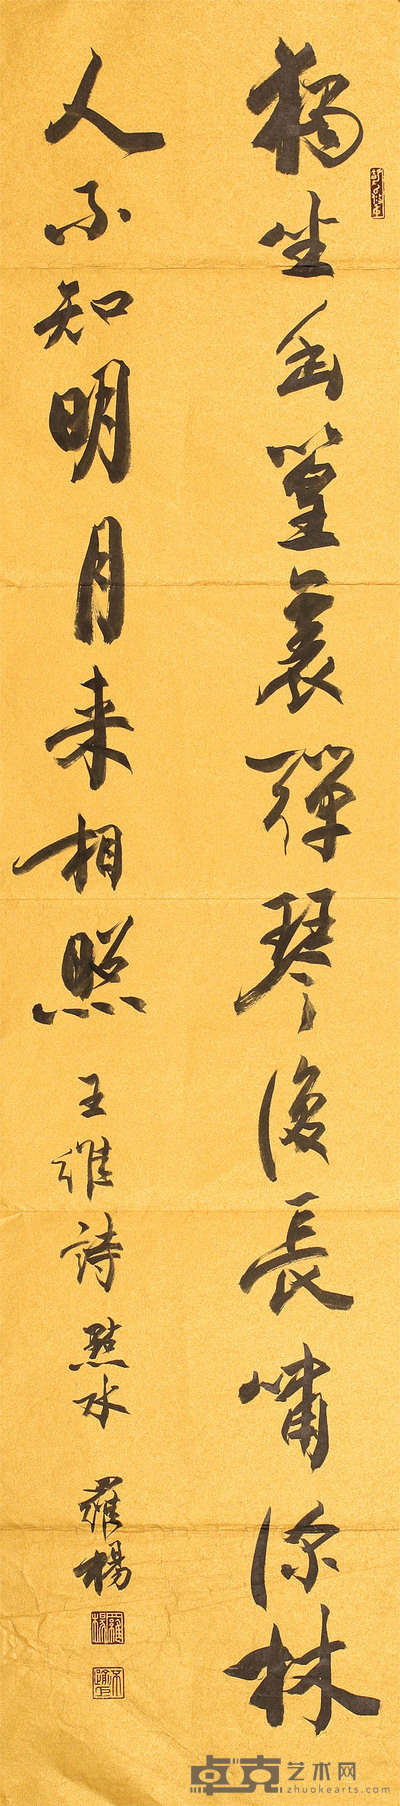 獨坐幽篁裏彈琴復長嘯深林
人不知明月來相照 王維詩 點水 羅楊
卓克艺术网
zhuokearts.com